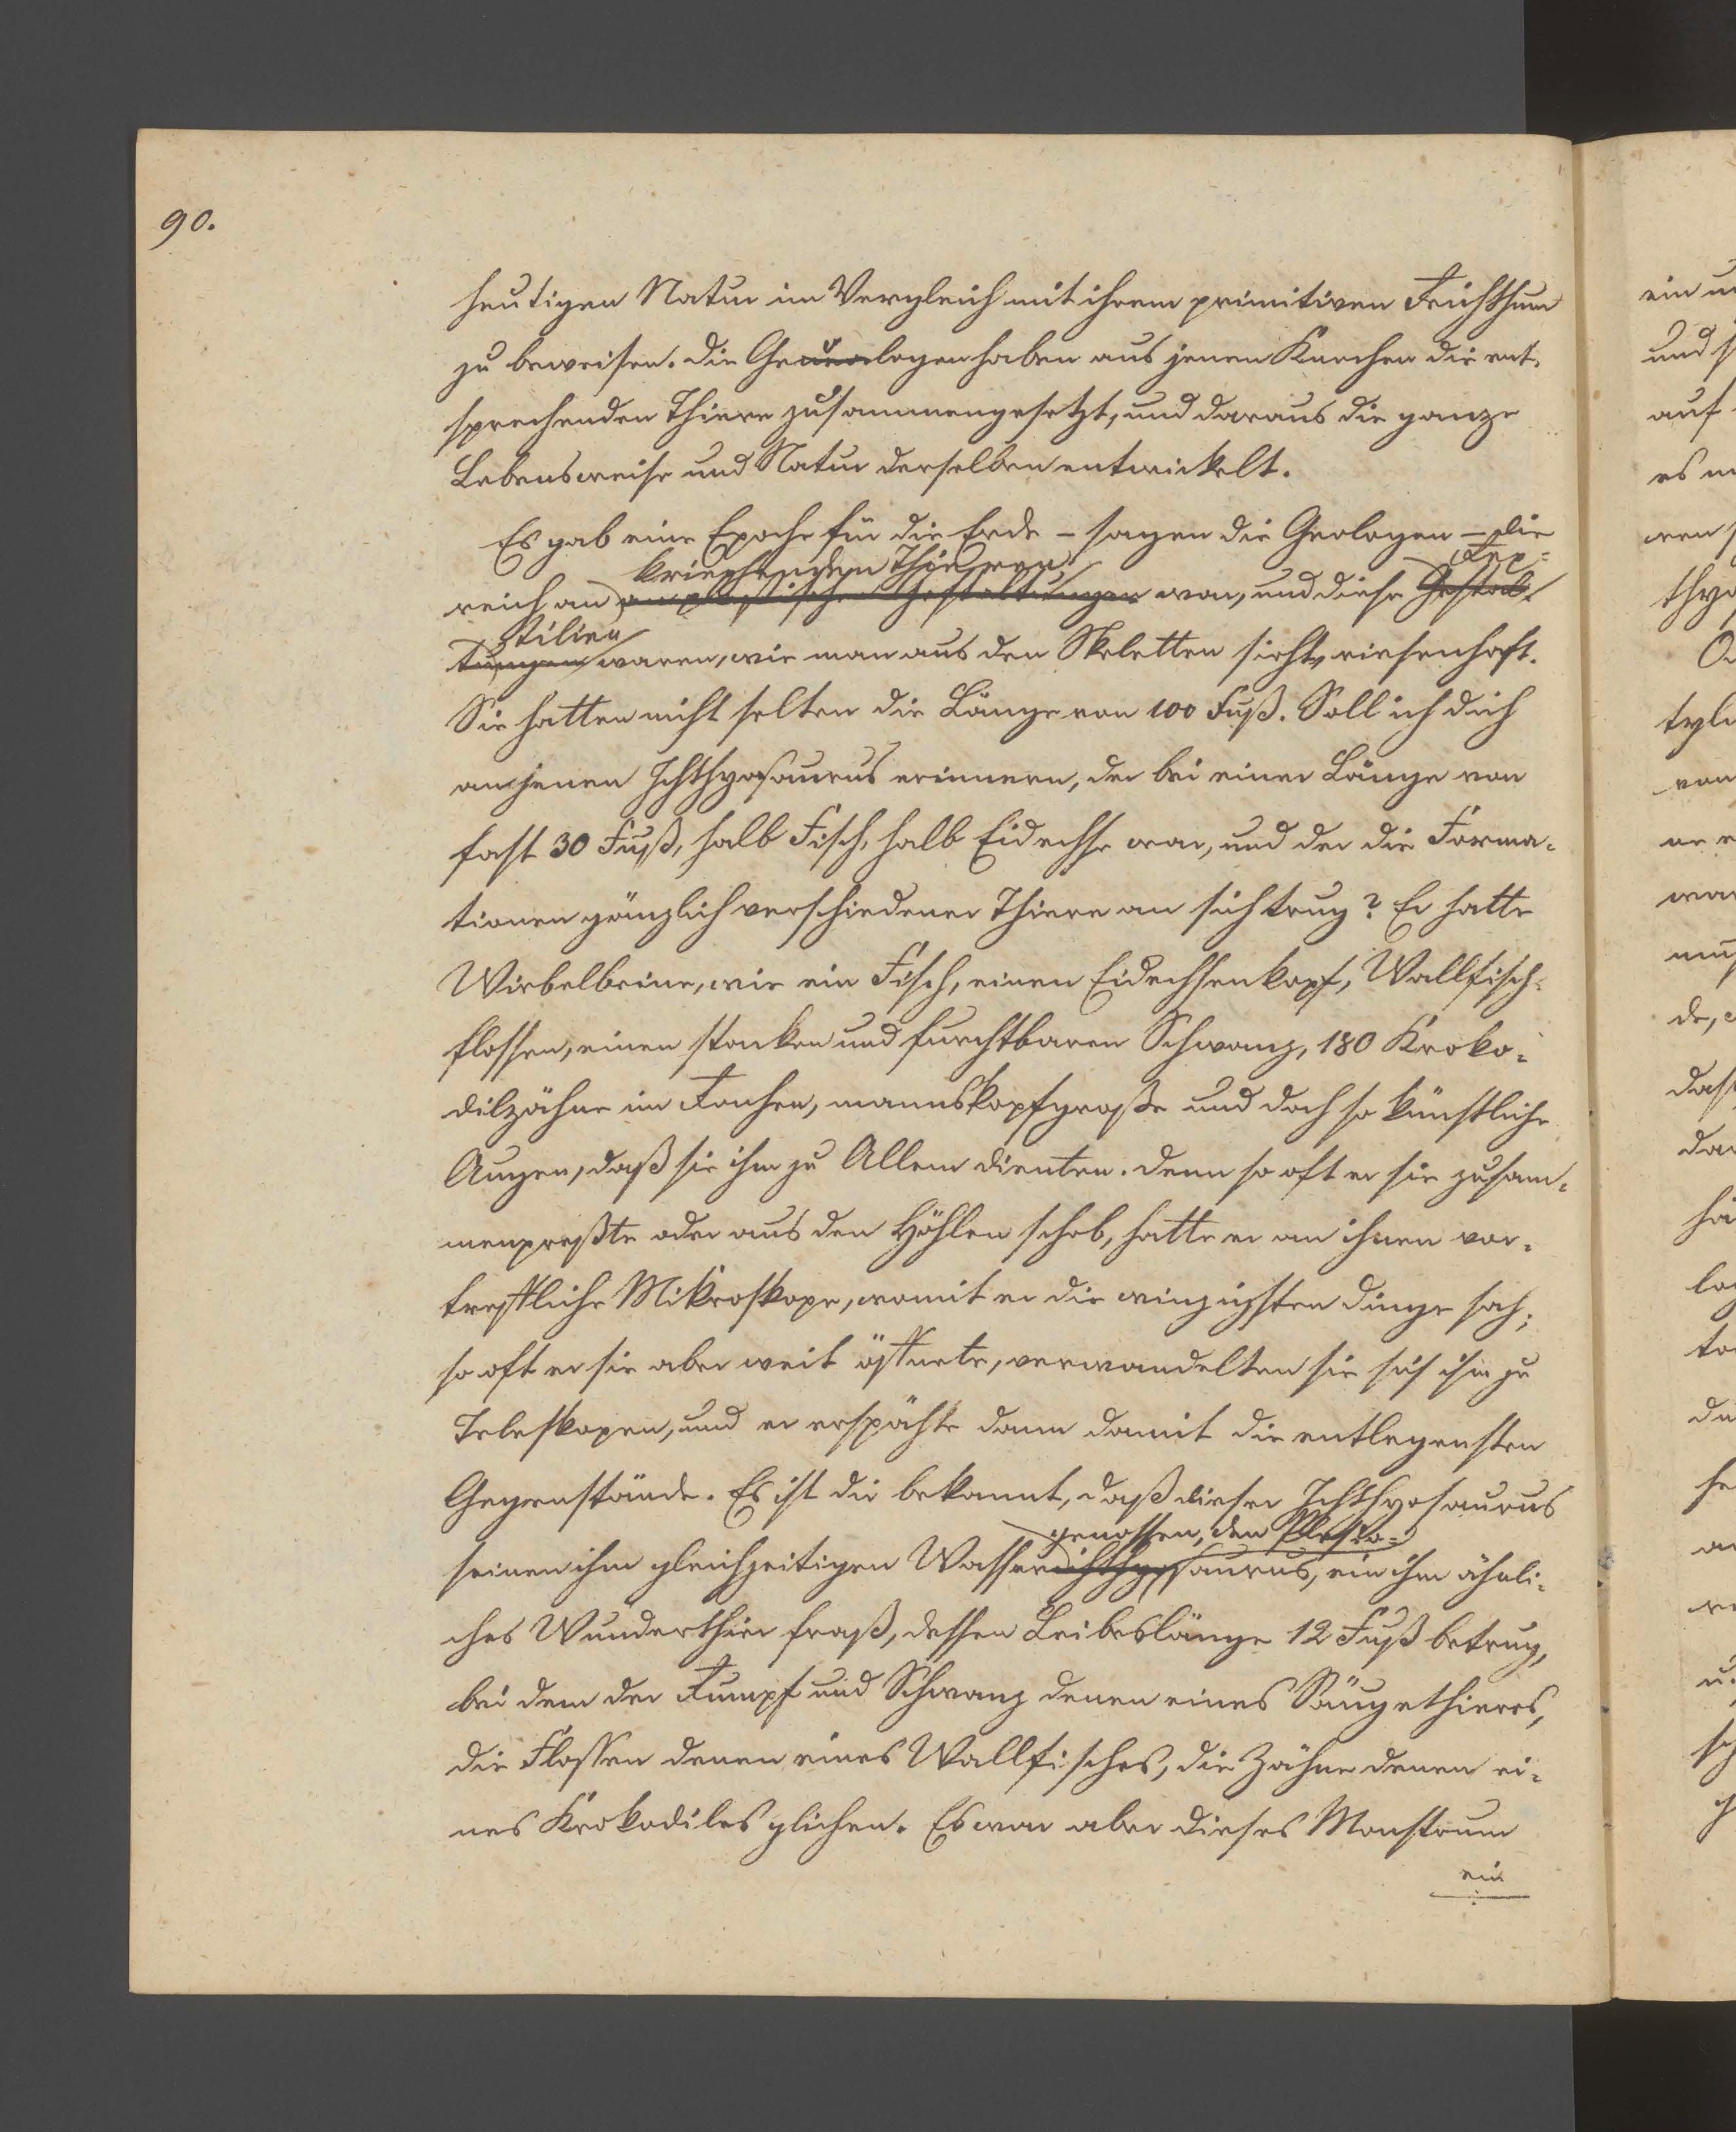 90.
heutigen Natur im Vergleich mit ihrem primitiven Reichthum
zu beweisen. Die Geologen haben aus jenen Knochen die ent-
sprechenden Thiere zusammengesetzt, und daraus die ganze
Lebensweise und Natur derselben entwickelt.
Es gab eine Epoche für die Erde – sagen die Geologen – die
kriechenden Thieren Rep-
reich an amphibischen Gestaltungen war, und diese Gestal-
tilien
tungen waren, wie man aus den Skeletten sieht, riesenhaft.
Sie hatten nicht selten die Länge von 100 Fuß. Soll ich dich
an jenen Ichthyosaurus erinnern, der bei einer Länge von
fast 30 Fuß, halb Fisch, halb Eidechse war, und der die Forma-
tionen gänzlich verschiedener Thiere an sich trug? Er hatte
Wirbelbeine, wie ein Fisch, einen Eidechsenkopf, Wallfisch-
flossen, einen starken und furchtbaren Schwanz, 180 Kroko-
dilzähne im Rachen, mannskopfgroße und doch so künstliche
Augen, daß sie ihm zu Allem dienten. Denn so oft er sie zusam-
menpreßte oder aus den Höhlen schob, hatte er an ihnen vor-
treffliche Mikroskope, womit er die winzigsten Dinge sah;
so oft er sie aber weit öffnete, verwandelten sie sich ihm zu
Teleskopen, und er erspähte dann damit die entlegensten
Gegenstände. Es ist dir bekannt, daß dieser Ichthyosaurus
genossen, den Plesio-
seinen ihm gleichzeitigen Wasserichthyosaurus, ein ihm ähnli-
ches Wunderthier fraß, dessen Leibeslänge 12 Fuß betrug,
bei dem der Rumpf und Schwanz denen eines Säugethieres,
die Flossen denen eines Wallfisches, die Zähne denen ei-
nes Krokodiles glichen. Es war aber dieses Monstrum
ein